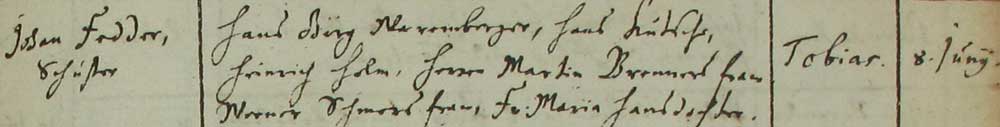 Johan Fedder,
Schuster
Hans Jürg Naremberger, Hans Kutsche,
Heinrich Holm. Herren Martin Brenners frau
Werner Schmers frau, Fr: Maria Hansdochter.
Tobias.
8. Junÿ.